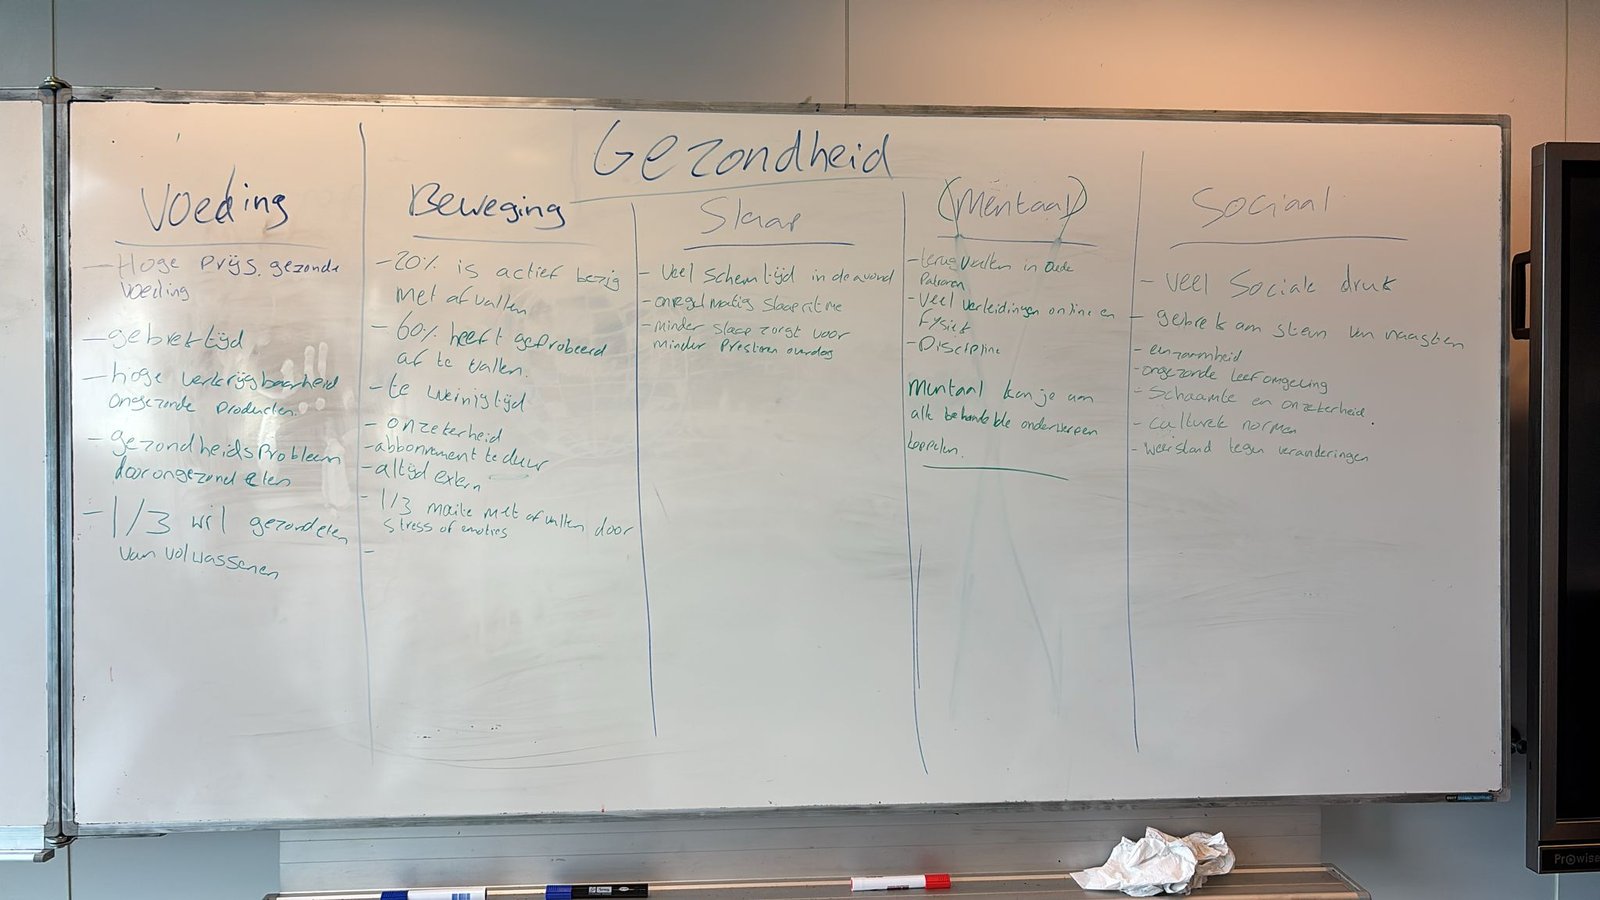 Gezondheid
Voeding
- Hoge prijs gezonde
voeding
- gebrek tijd
- hoge verkrijgbaarheid
ongezonde producten
- gezondheidsprobleem
door ongezond eten
- 1/3 wil gezond eten
van volwassenen
Beweging
- 20% is actief bezig
met afvallen
- 60% heeft geprobeerd
af te vallen.
- te weinig tijd
- onzekerheid
- abbonnement te duur
- altijd extern
- 1/3 moeite met afvallen door
stress of emoties
-
Slaap
- Veel schermtijd in de avond
- onregelmatig slaapritme
- minder slaap zorgt voor
minder presteren overdag
(Mentaal)
- terugvallen in oude
Patronen
- Veel verleidingen online en
fysiek
- Discipline
Mentaal kan je aan
alle behandelde onderwerpen
koppelen.
Sociaal
- Veel Sociale druk
- gebrek aan steun van naasten
- eenzaamheid
- ongezonde leefomgeving
- Schaamte en onzekerheid
- culturele normen
- weerstand tegen veranderingen
Prowise